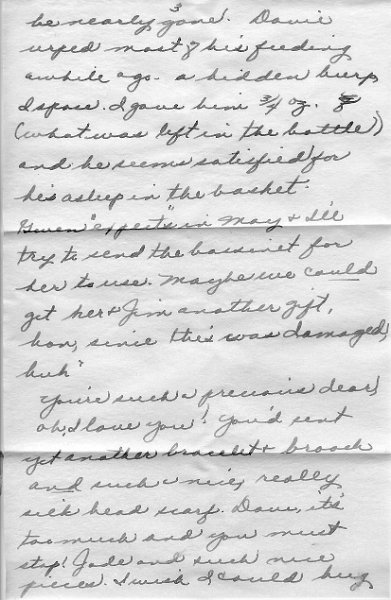 3
be nearly gone! Davie
urped most of his feeding
awhile ago - a hidden burp,
I spose. I gave him 3/4 oz.
(what was left in the bottle)
and he seems satisfied for
he's asleep in the basket.
Gwen "expects" in May & I'll
try to send the bassinet for
her to use. Maybe we could
get her & Jim another gift,
hon, since this was damaged,
huh?
You're such a precious dear,
oh, I love you! You'd sent
yet another bracelet & brooch
and such a nice, really
sick head scarf. Dave, it's
too much and you must
stop! Jade and such nice
pieces. I wish I could hug